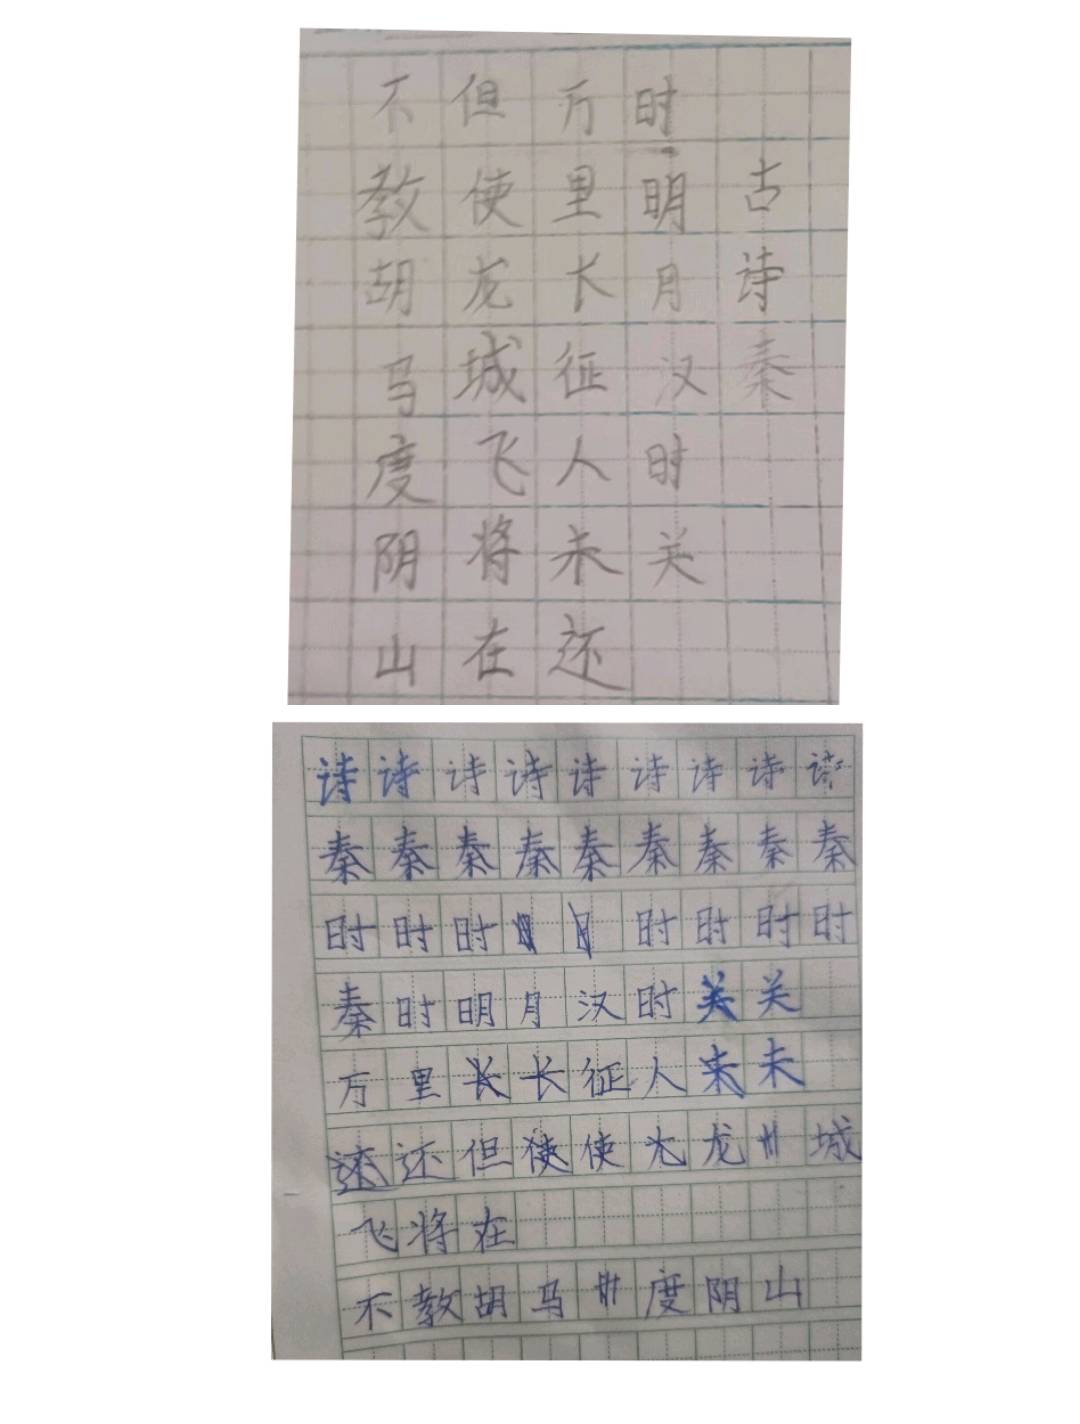 古诗秦
时明月汉时关
万里长征人未还
但使龙城飞将在
不教胡马度阴山
诗诗诗诗诗诗诗诗诗
秦秦秦秦秦秦秦秦秦
时时时时时时时
秦时明月汉时关关
万里长长征人未
还还但使使龙城
飞将在
不教胡马度阴山